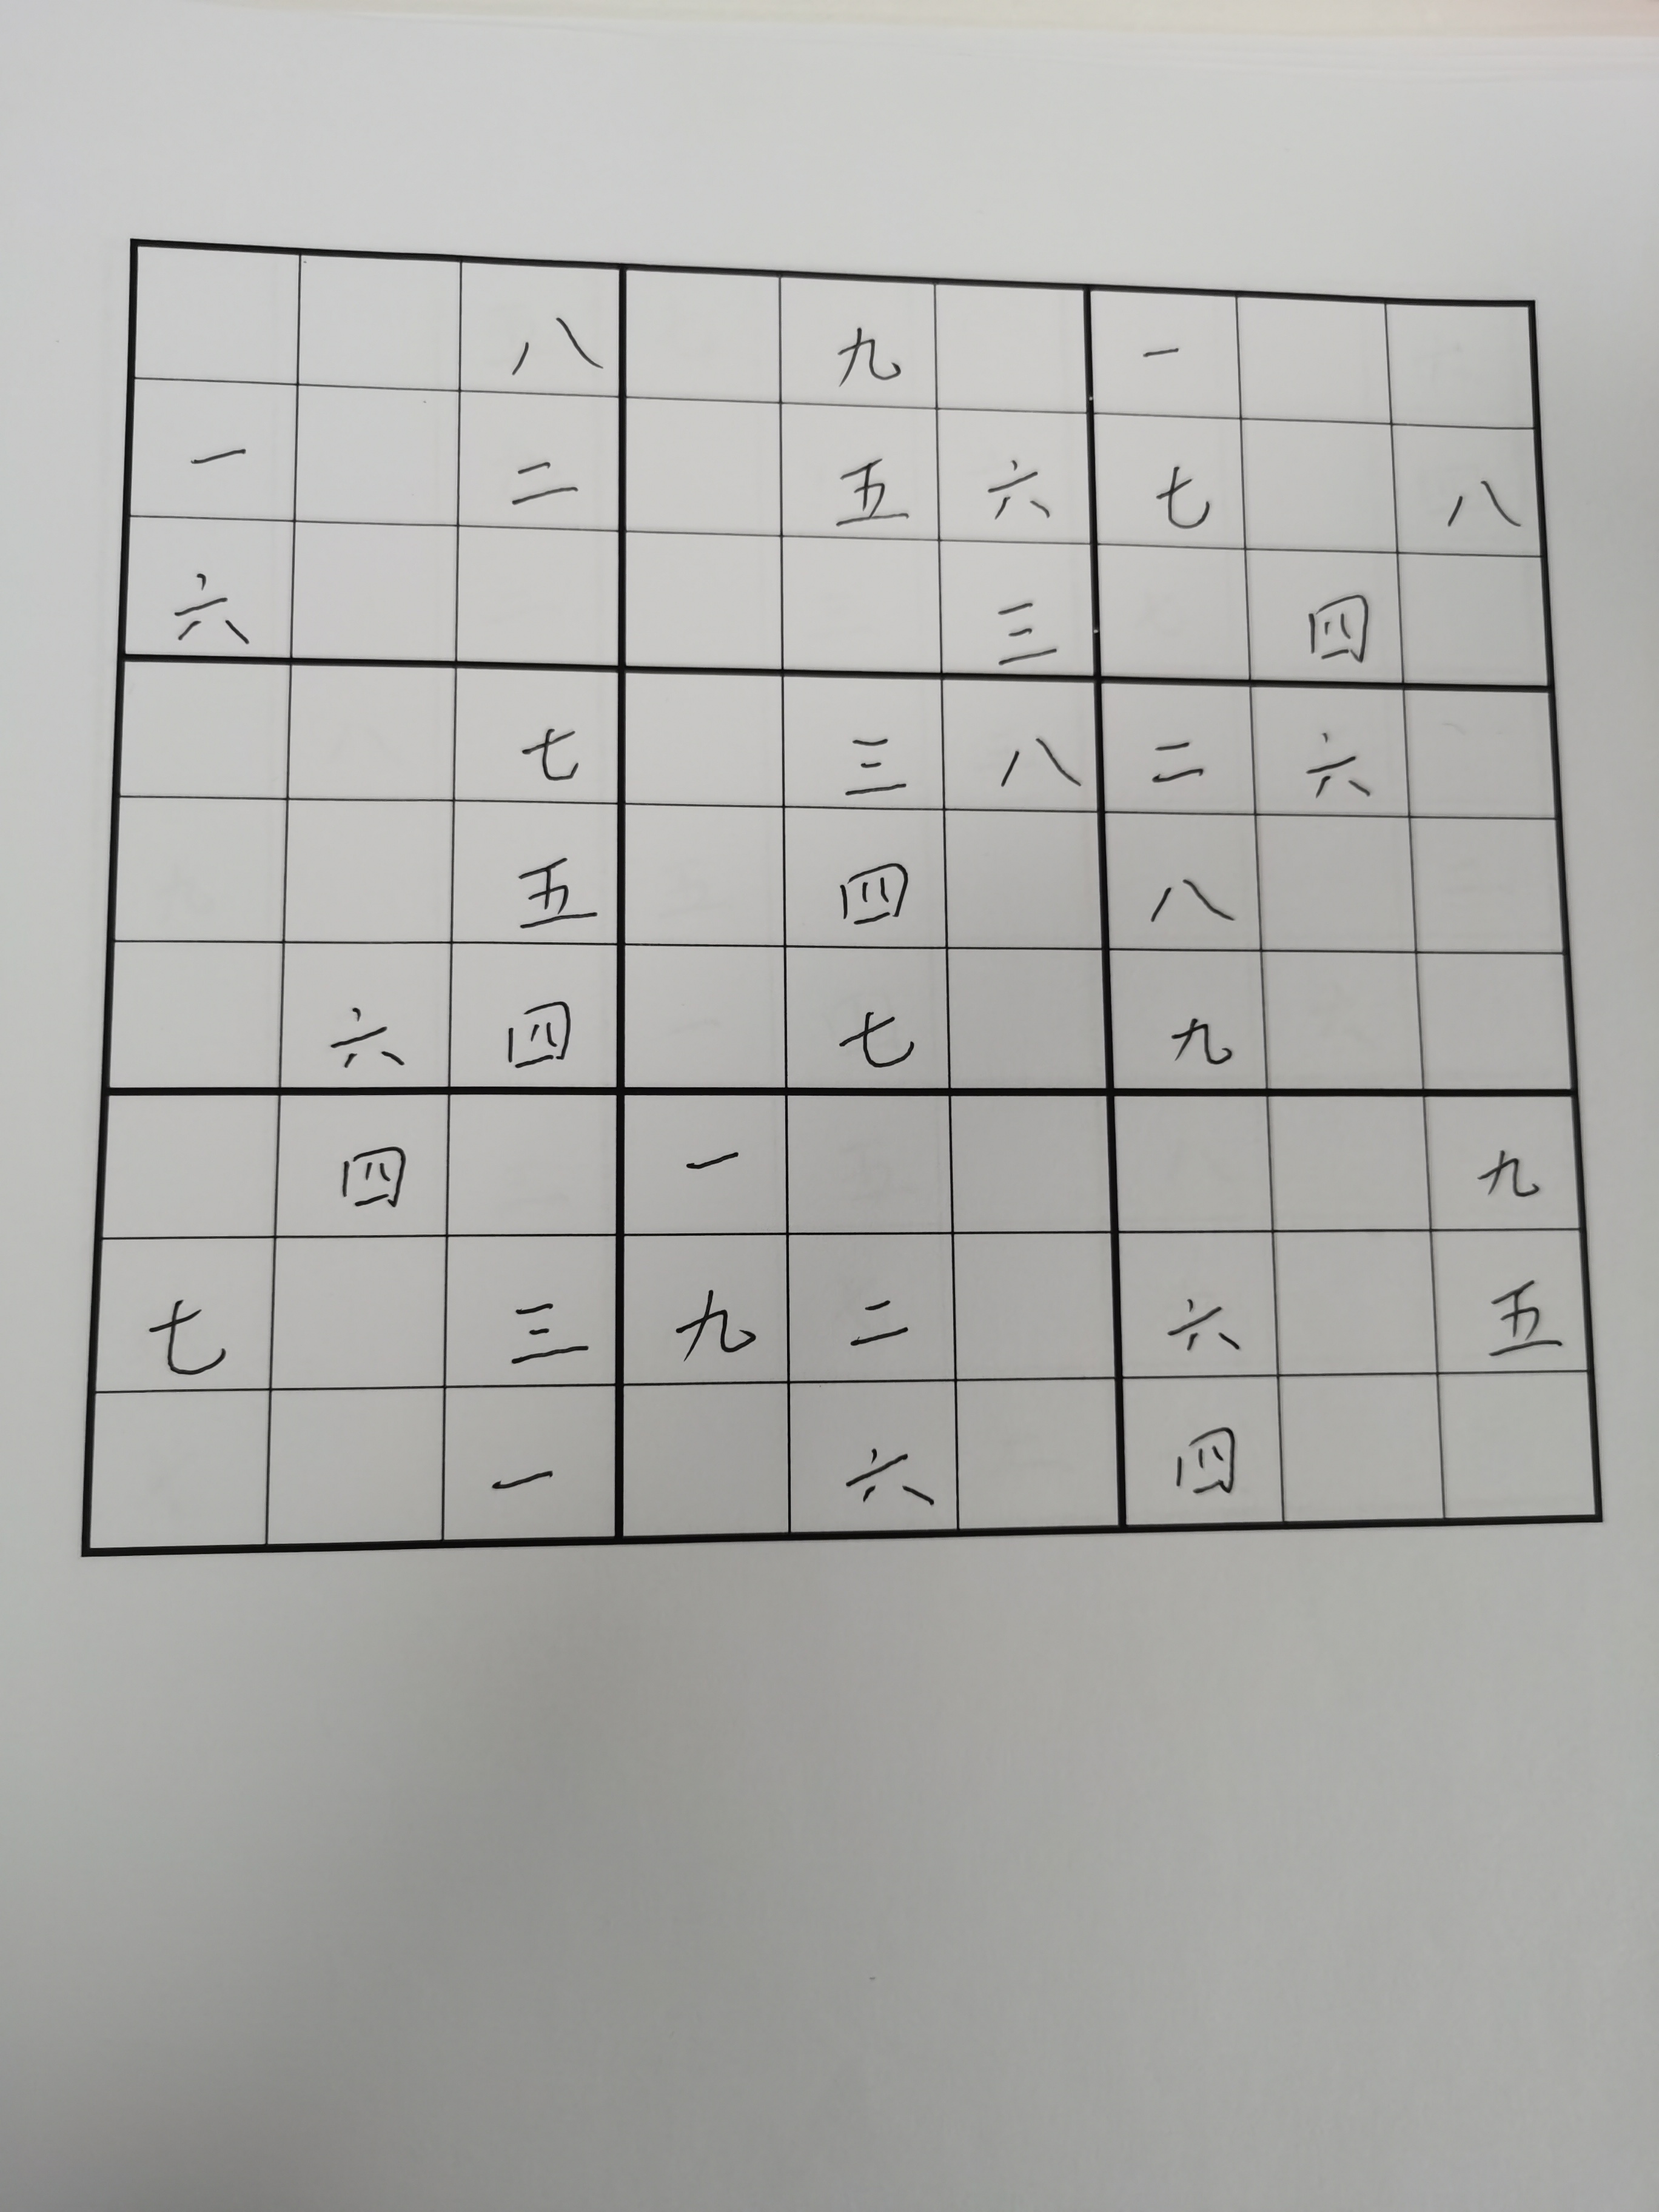 八 九 一
一 二 五 六 七 八
六 三 四
七 三 八 二 六
五 四 八
六 四 七 九
四 一 九
七 三 九 二 六 五
一 六 四